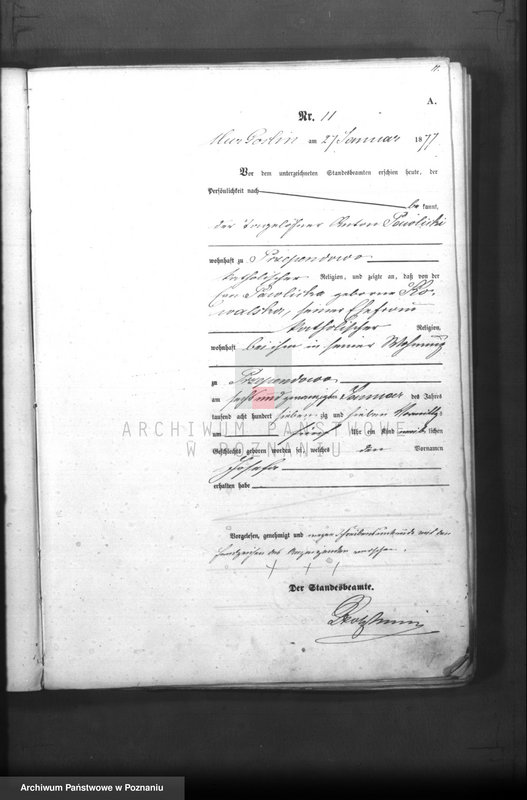 11.
A.
Nr. 11
Mur Goslin am 27 Januar 1877
Vor dem unterzeichneten Standesbeamten erschien heute, der
Persönlichkeit nach
be kannt,
der Tagelöhner Anton
wohnhaft zu Przependowo
katholischer Religion, und zeigte an, daß von der
geborene Ko-
walska, seiner Ehefrau
katholischer Religion,
wohnhaft bei ihm in seiner Wohnung
zu Przependowo
am sechsundzwanzigsten Januar des Jahres
tausend acht hundert sieben zig und sieben Vormittags
um fünf Uhr ein Kind weiblichen
Geschlechts geboren worden sei, welches den Vornamen
Josefa
erhalten habe
Vorgelesen, genehmigt und wegen Schreibensunkunde mit den
Handzeichen des Anzeigenden versehen.
+ + +
Der Standesbeamte.
ARCHIWUM PAŃSTWOWE
W POZNANIU
Archiwum Państwowe w Poznaniu